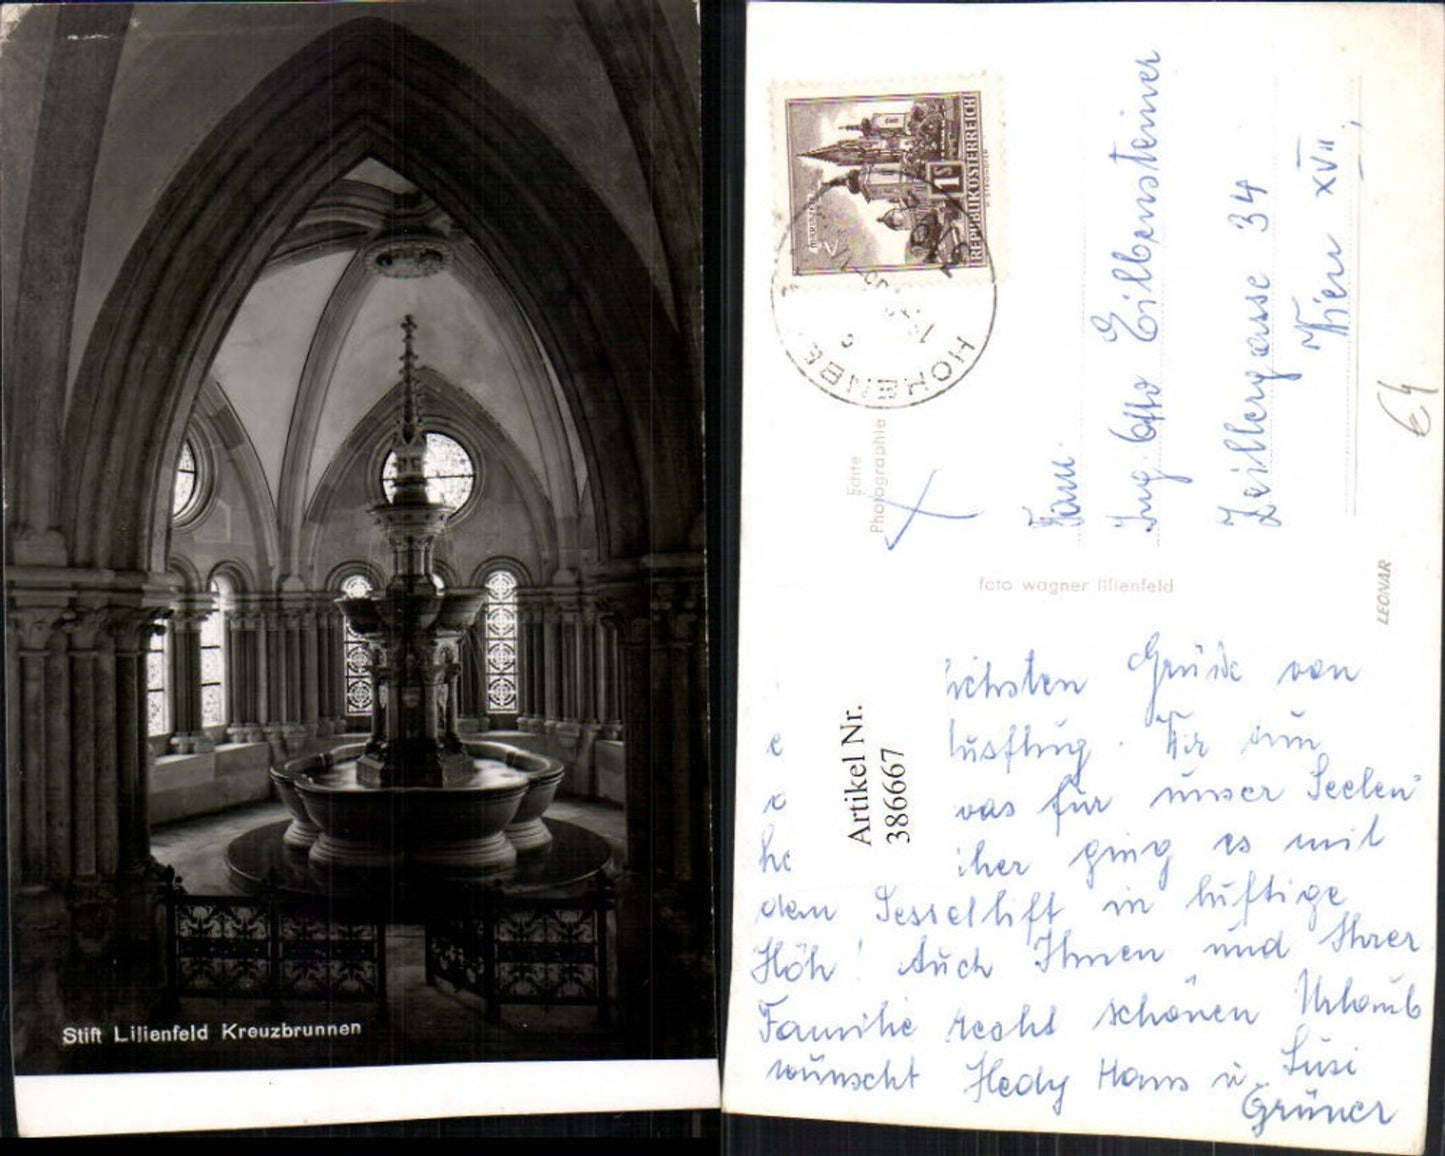 Stift Lilienfeld Kreuzbrunnen
REPUBLIK ÖSTERREICH
1S
HOHENBE
Echte
Photographie
Fam.
Ing. Otto Eilbensteiner
Zeillergasse 34
Wien XVII.
E4
foto wagner lilienfeld
LEONAR
Artikel Nr.
386667
lichsten Grüße von
e lusflug. Wir tun
was für unser Seelen-
he iher ging es mit
dem Sessellift in luftige
Höh! Auch Ihnen und Ihrer
Familie recht schönen Urlaub
wünscht Hedy Hans u. Susi
Grüner